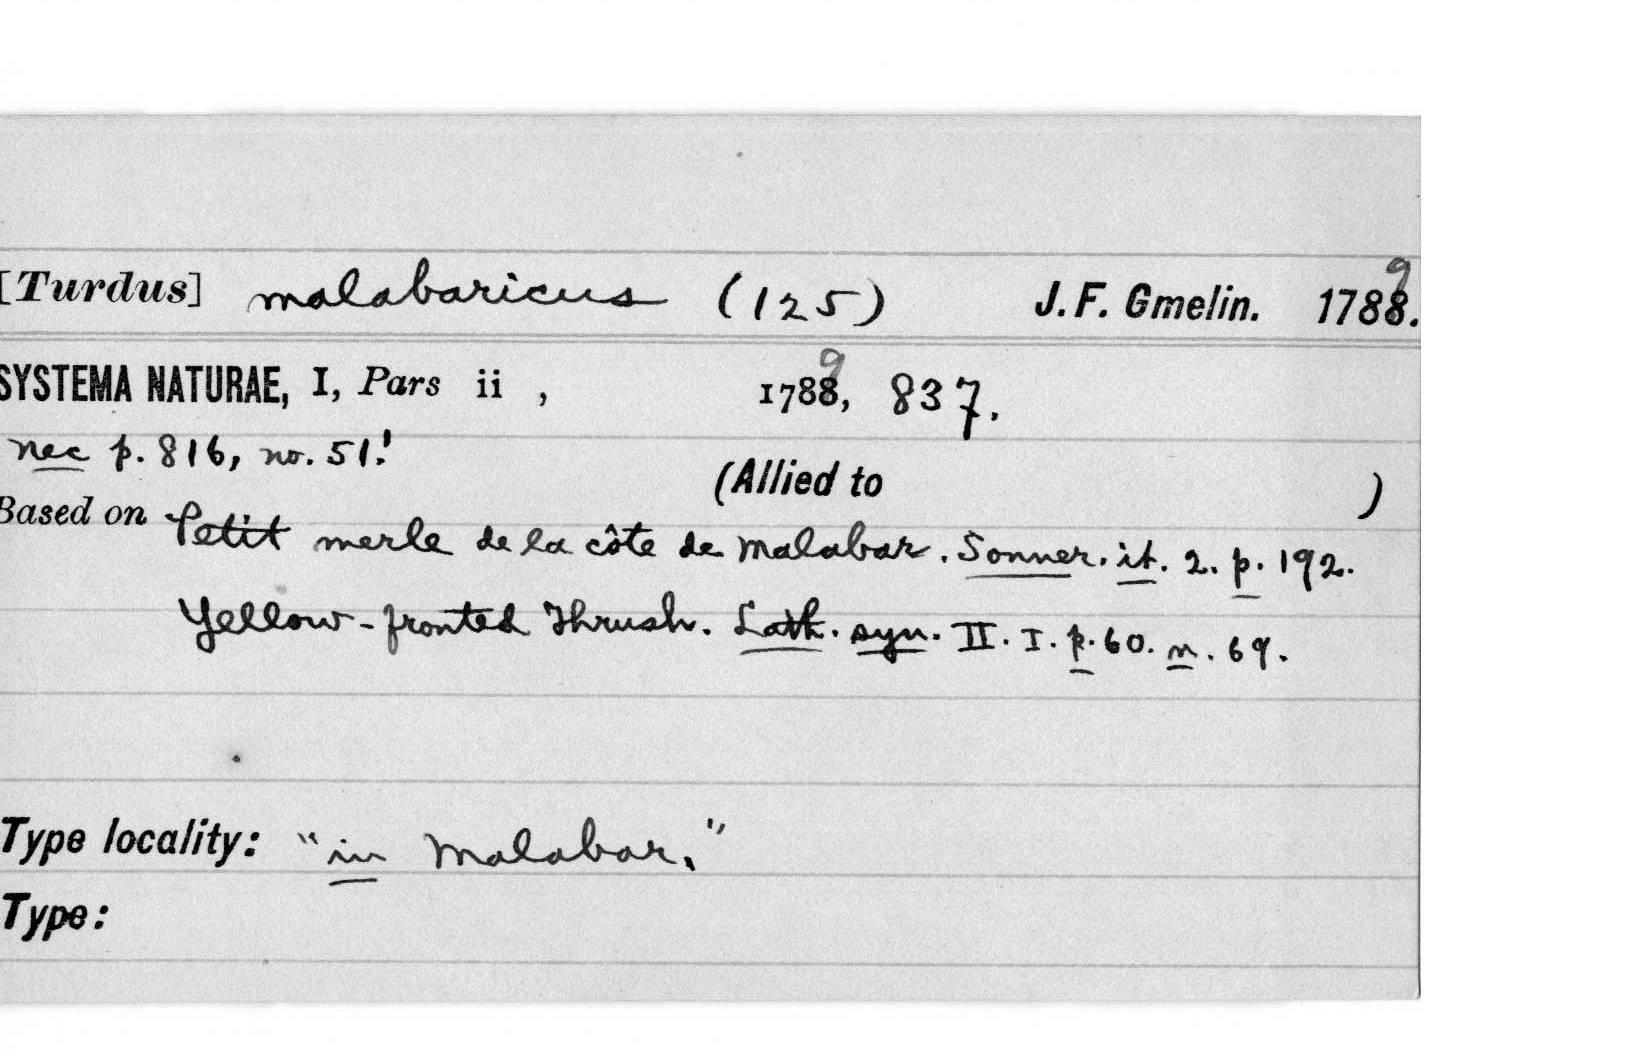 [Turdus] malabaricus (125) J. F. Gmelin. 1788. 9
SYSTEMA NATURAE, I, Pars ii , 1788, 9 837.
nec p. 816, no. 51!
(Allied to )
Based on Petit merle de la côte de Malabar. Sonner. it. 2. p. 192.
Yellow-fronted Thrush. Lath. syn. II. I. p. 60. n. 69.
Type locality: "in Malabar."
Type: